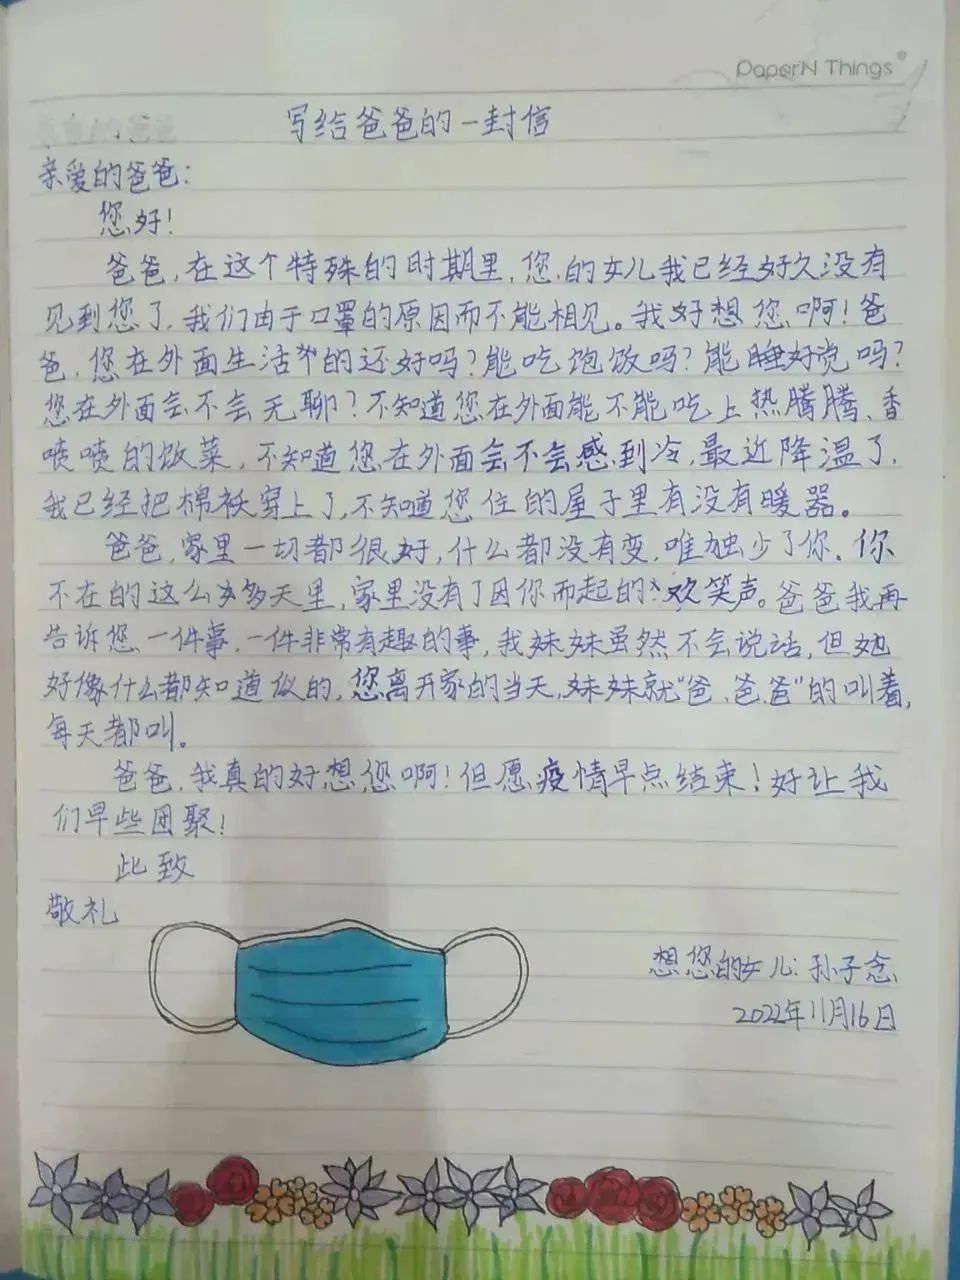 PaperN Things
写给爸爸的一封信
亲爱的爸爸：
您好！
爸爸，在这个特殊的时期里，您的女儿我已经好久没有
见到您了，我们由于口罩的原因而不能相见。我好想您啊！爸
爸，您在外面生活的还好吗？能吃饱饭吗？能睡好觉吗？
您在外面会不会无聊？不知道您在外面能不能吃上热腾腾、香
喷喷的饭菜，不知道您在外面会不会感到冷，最近降温了，
我已经把棉袄穿上了，不知道您住的屋子里有没有暖器。
爸爸，家里一切都很好，什么都没有变，唯独少了你。你
不在的这么多天里，家里没有了因你而起的欢笑声。爸爸我再
告诉您一件事，一件非常有趣的事，我妹妹虽然不会说话，但她
好像什么都知道似的，您离开家的当天，妹妹就“爸、爸爸”的叫着，
每天都叫。
爸爸，我真的好想您啊！但愿疫情早点结束！好让我
们早些团聚！
此致
敬礼
想您的女儿：孙子念
2022年11月16日